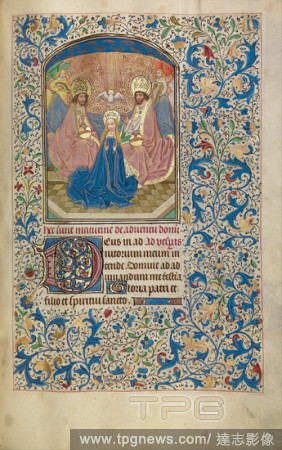 hec sunt matutine de adventu domi
Deus in ad ad vesperas
iutorium meum in
tende. Domine ad ad
iuvandum me festia
Gloria patri et
filio et spiritui sancto.
TPG
www.tpgnews.com/達志影像